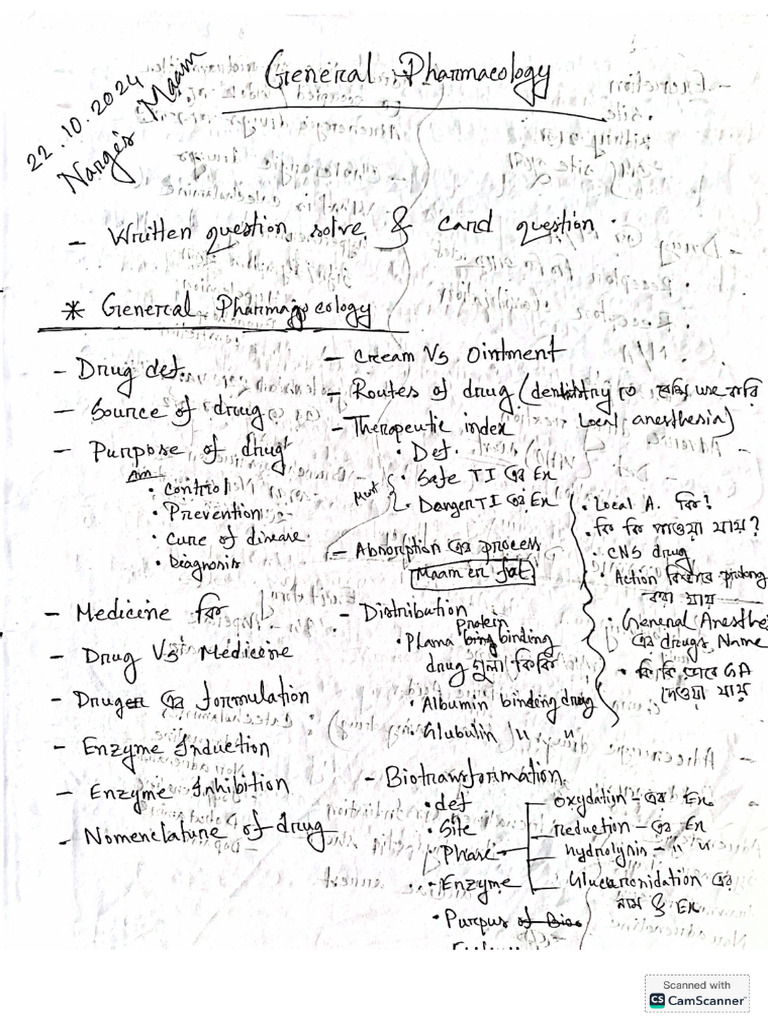 General Pharmacology
22.10.2024
Narges Maam
- Written question solve & card question.
* General Pharmacology
- Drug def.
- Source of drug
- Purpose of drug
Aim
• Control
• Prevention
• Cure of disease
• Diagnosis
- Medicine কি
- Drug Vs Medicine
- Drug এর formulation
- Enzyme Induction
- Enzyme Inhibition
- Nomenclature of drug
- Cream Vs Ointment
- Routes of drug (dentistry তে বেশি use করি
Local anesthesia)
- Therapeutic index
• Def.
Must
• Safe TI এর Ex
• Danger TI এর Ex
- Absorption এর process
Maam er
- Distribution
• Plama protein binding
drug গুলা কি কি
• Albumin binding drug
Glubulin " "
• Local A. কি?
• কি কি পাওয়া যায়?
• CNS drug
• Action কিভাবে prolong
করা যায়
• General Anesthe
এর drugs, Name
• কি কি ভাবে GA
দেওয়া যায়
- Biotransformation
• def
• Site
• Phase
• Enzyme
• Purpus
oxydation - এর Ex
reduction - এর Ex
hydrolysis - " "
Glucoronidation এর
নাম & Ex
Scanned with
CS CamScanner